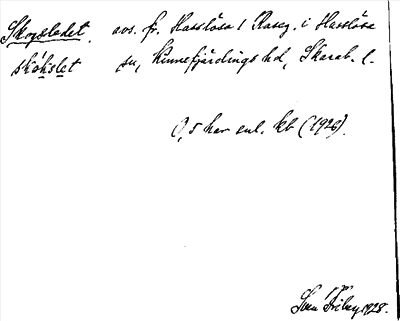 Skogsledet. avs. fr. Hasslösa 1 Raseg. i Hasslösa
skòksle̱t sn, Kinnefjärdings hd, Skarab. l.
0,5 har enl. kb (1926).
Sven Friberg 1928.